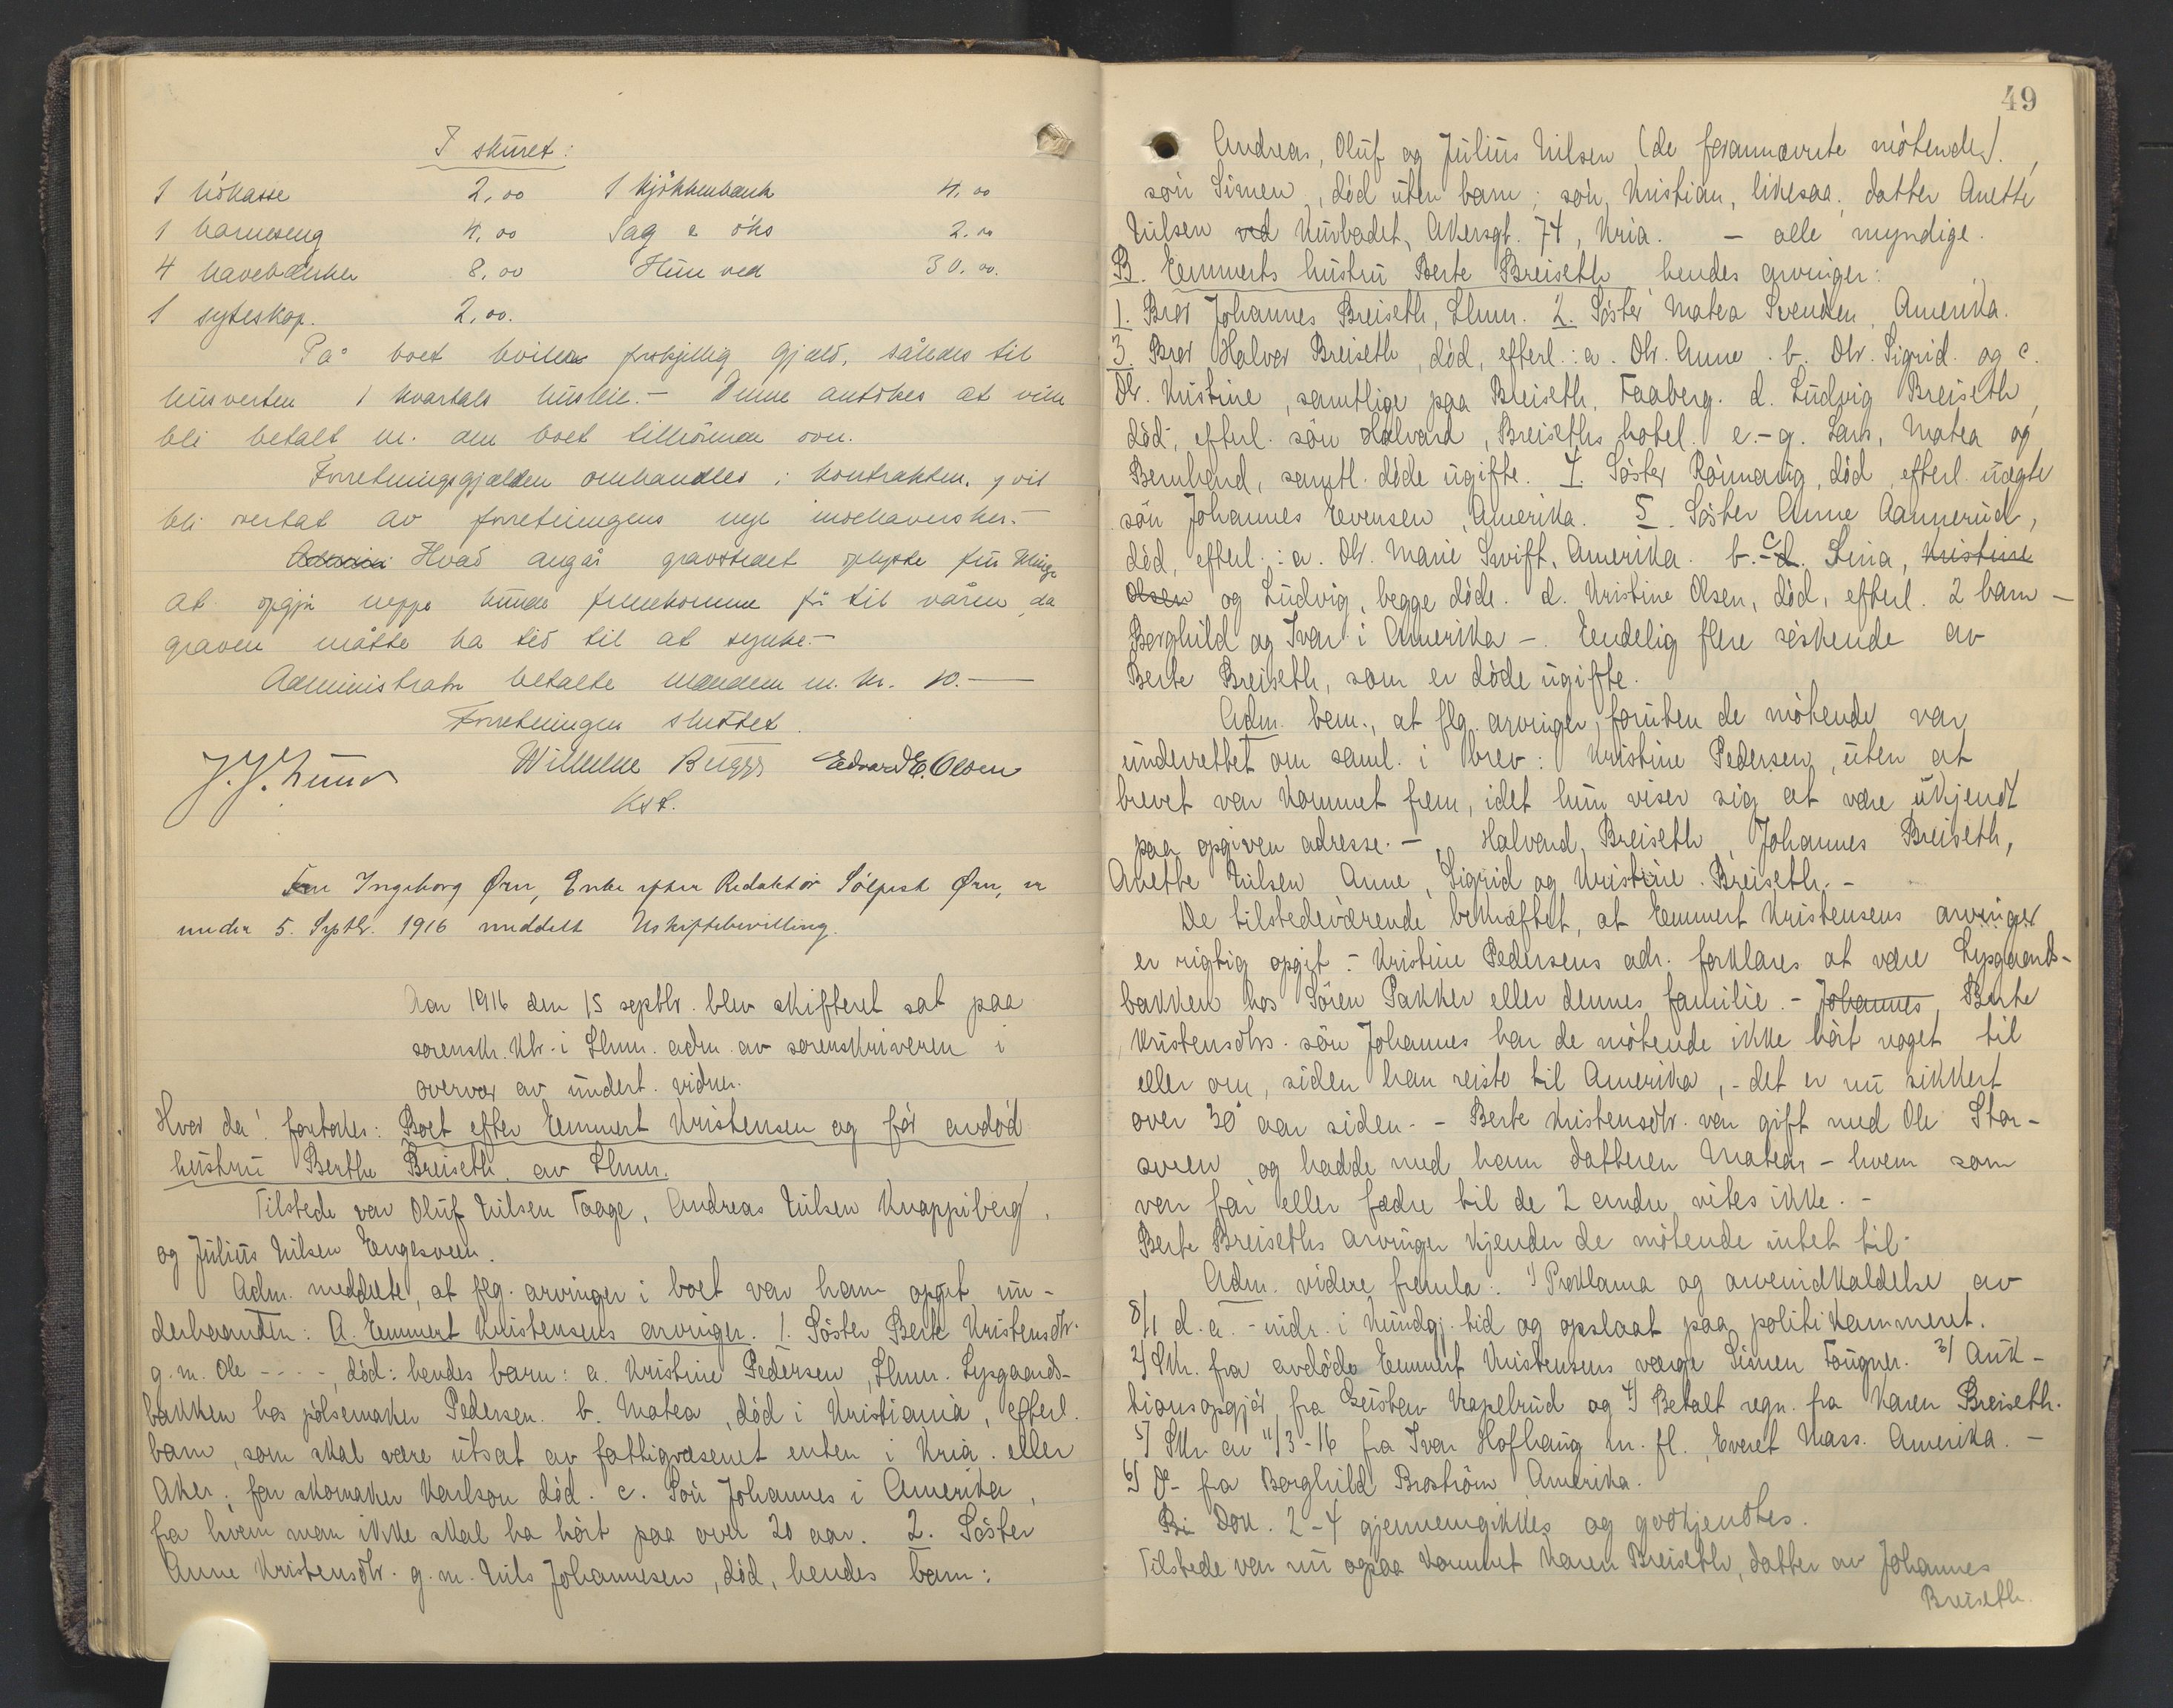 I skuret:
1 vedkasse 2,00 1 kjökkenbænk 4.00
1 barneseng 4,00 Sag & öks 2.00
4 havebænker 8,00 ved 30.00.
1 syteskap. 2,00.
På boet hviler forskjellig gjæld, således til
husverten 1 kvartals husleie. - Denne antokes at ville
bli betalt m. den boet tilhörende ovn.
Forretningsgjælden omhandles i kontrakten, og vil
bli overtat av forretningens nye indehaversker. -
Hvad angår gravstedet oplyste fru Klinge
at opgjör neppe kunde fremkomme för til våren, da
graven måtte ha tid til at synke. -
Administrator betalte mændene m. kr. 10. -
Forretningen sluttet.
J. J. Lund Wilhelm Bugge Edvard E. Olsen
kst.
Fru Ingeborg Ørn, Enke efter Redaktör Sölfest Ørn, er
under 5. Septbr. 1916 meddelt Uskiftebevilling.
Aar 1916 den 15 septbr. blev skifteret sat paa
sorenskr. ktr. i Lhmr. adm. av sorenskriveren i
overvær av undert. vidner.
Hvor da! foretokes: Boet efter Emmert Kristensen og för avdöd
hustru Berthe Breiseth, av Lhmr.
Tilstede var Oluf Nilsen Faage, Andreas Nilsen Knappiberg,
og Julius Nilsen Engesveen.
Adm. meddelte, at flg. arvinger i boet var ham opgit un-
derhaanden: A. Emmert Kristensens arvinger. 1. Söster Berte Kristensdtr.
g. m. Ole - - - -, död: hendes barn: a. Kristine Pedersen, Lhmr. Lysgaards-
bakken hos pölsemaker Pedersen. b. Matea, död i Kristiania, efterl.
barn, som skal være utsat av fattigvæsenet enten i Kria. eller
Aker; far skomaker Karlson död. c. Sön Johannes i Amerika,
fra hvem man ikke skal ha hört paa over 20 aar. 2. Söster
Anne Kristensdtr. g. m. Nils Johannesen, död, hendes barn:
49
Andreas, Oluf og Julius Nilsen (de forannævnte mötende).
sön Simen, död uten barn; sön Kristian, likesaa, datter Anette
Nilsen ved Kurbadet, Akersgt. 74, Kria. - alle myndige.
B. Emmerts hustru Berte Breiseth, hendes arvinger:
1. Bror Johannes Breiseth, Lhmr. 2. Söster Matea Svendsen, Amerika.
3. Bror Halvor Breiseth, död, efterl.: a. Dtr. Anne. b. Dtr. Sigrid. og c.
Dtr. Kristine, samtlige paa Breiseth, Faaberg. d. Ludvig Breiseth,
död, efterl. sön Halvard, Breiseths hotel. e.-g. Lars, Matea og
Bernhard, samtl. döde ugifte. 4. Söster Rönnaug, död, efterl. uægte
sön Johannes Evensen, Amerika. 5. Söster Anne Aannerud,
död, efterl.: a. Dtr. Marie Swift, Amerika. b.-c d. Lina, Kristine
Olsen og Ludvig, begge döde. d. Kristine Olsen, död, efterl. 2 barn -
Borghild og Ivar i Amerika -. Eendelig flere söskende av
Berte Breiseth, som er döde ugifte.
Adm. bem., at flg. arvinger, foruten de mötende var
underrettet om saml. i brev: Kristine Pedersen, uten at
brevet var kommet frem, idet hun viser sig at være ukjendt
paa opgiven adresse. -, Halvard Breiseth, Johannes Breiseth,
Anette Nilsen Anne, Sigrid og Kristine Breiseth. -
De tilstedeværende bekræftet, at Emmert Kristensens arvinger
er rigtig opgit. - Kristine Pedersens adr. forklares at være Lysgaards-
bakken hos Sören Pakker eller dennes familie. - Johannes, Berte
Kristensdtrs. sön Johannes har de mötende ikke hört noget til
eller om, siden han reiste til Amerika, - det er nu sikkert
over 30 aar siden. - Berte Kristensdtr. var gift med Ole Stor-
sveen og hadde med ham datteren Matea - hvem som
var far eller fædre til de 2 andre vites ikke. -
Berte Breiseths arvinger kjender de mötende intet til.
Adm. videre fremla: 1/ Proklama og arveindkaldelse av
8/1 d. a. - indr. i Kundgj. tid og opslaat paa politikammeret.
2/ Skr. fra avdöde Emmert Kristensens værge Simen Fougner. 3/ Auk-
tionsopgjör fra Gustav Kapelrud og 4/ Betalt regn. fra Karen Breiseth.
5/ Skr. av 11/3-16 fra Ivar Hofhaug m. fl., Everet Mass. Amerika. -
6/ Do fra Borghild Broström Amerika.
Bi Dok. 2-4 gjennemgikkes og godkjendtes.
Tilstede var nu ogsaa kommet Karen Breiseth, datter av Johannes
Breiseth.